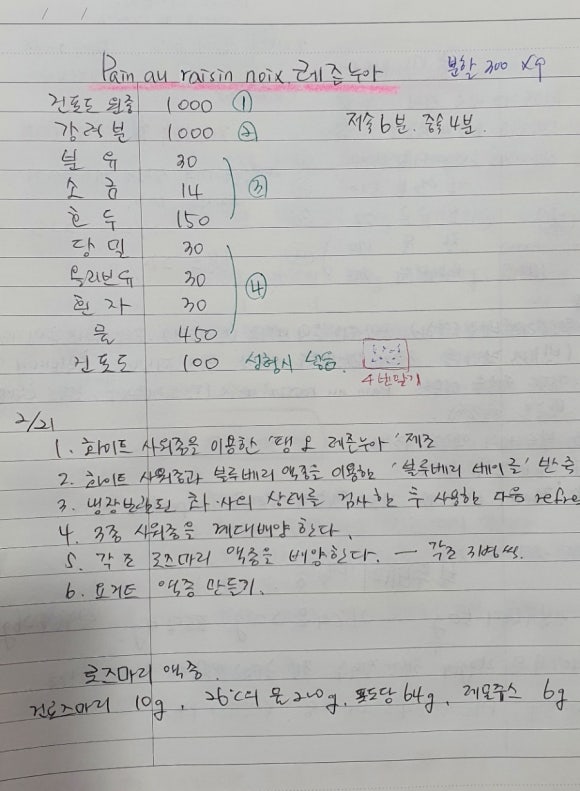 Pain au raisin noix. 레즌누아 분할 300 x9
건포도 원종 1000 ①
강력분 1000 ② 저속 6분. 중속 4분.
분유 30
소금 14 ③
호두 150
당밀 30
올리브유 30
흰자 30 ④
물 450
건포도 100 성형시 넣음. 4번말기
2/21
1. 화이트 사워종을 이용한 '팽 오 레즌누아' 제조
2. 화이트 사워종과 블루베리 액종을 이용한 '블루베리 베이글' 반죽
3. 냉장보관된 화·사의 상태를 검사한 후 사용한 다음 refre
4. 3종 사워종을 계대배양 한다.
5. 각 조 로즈마리 액종을 배양한다. — 각조 1병씩.
6. 요거트 액종 만들기.
로즈마리 액종.
건로즈마리 10g, 26℃의 물 200g, 포도당 64g, 레몬주스 6g